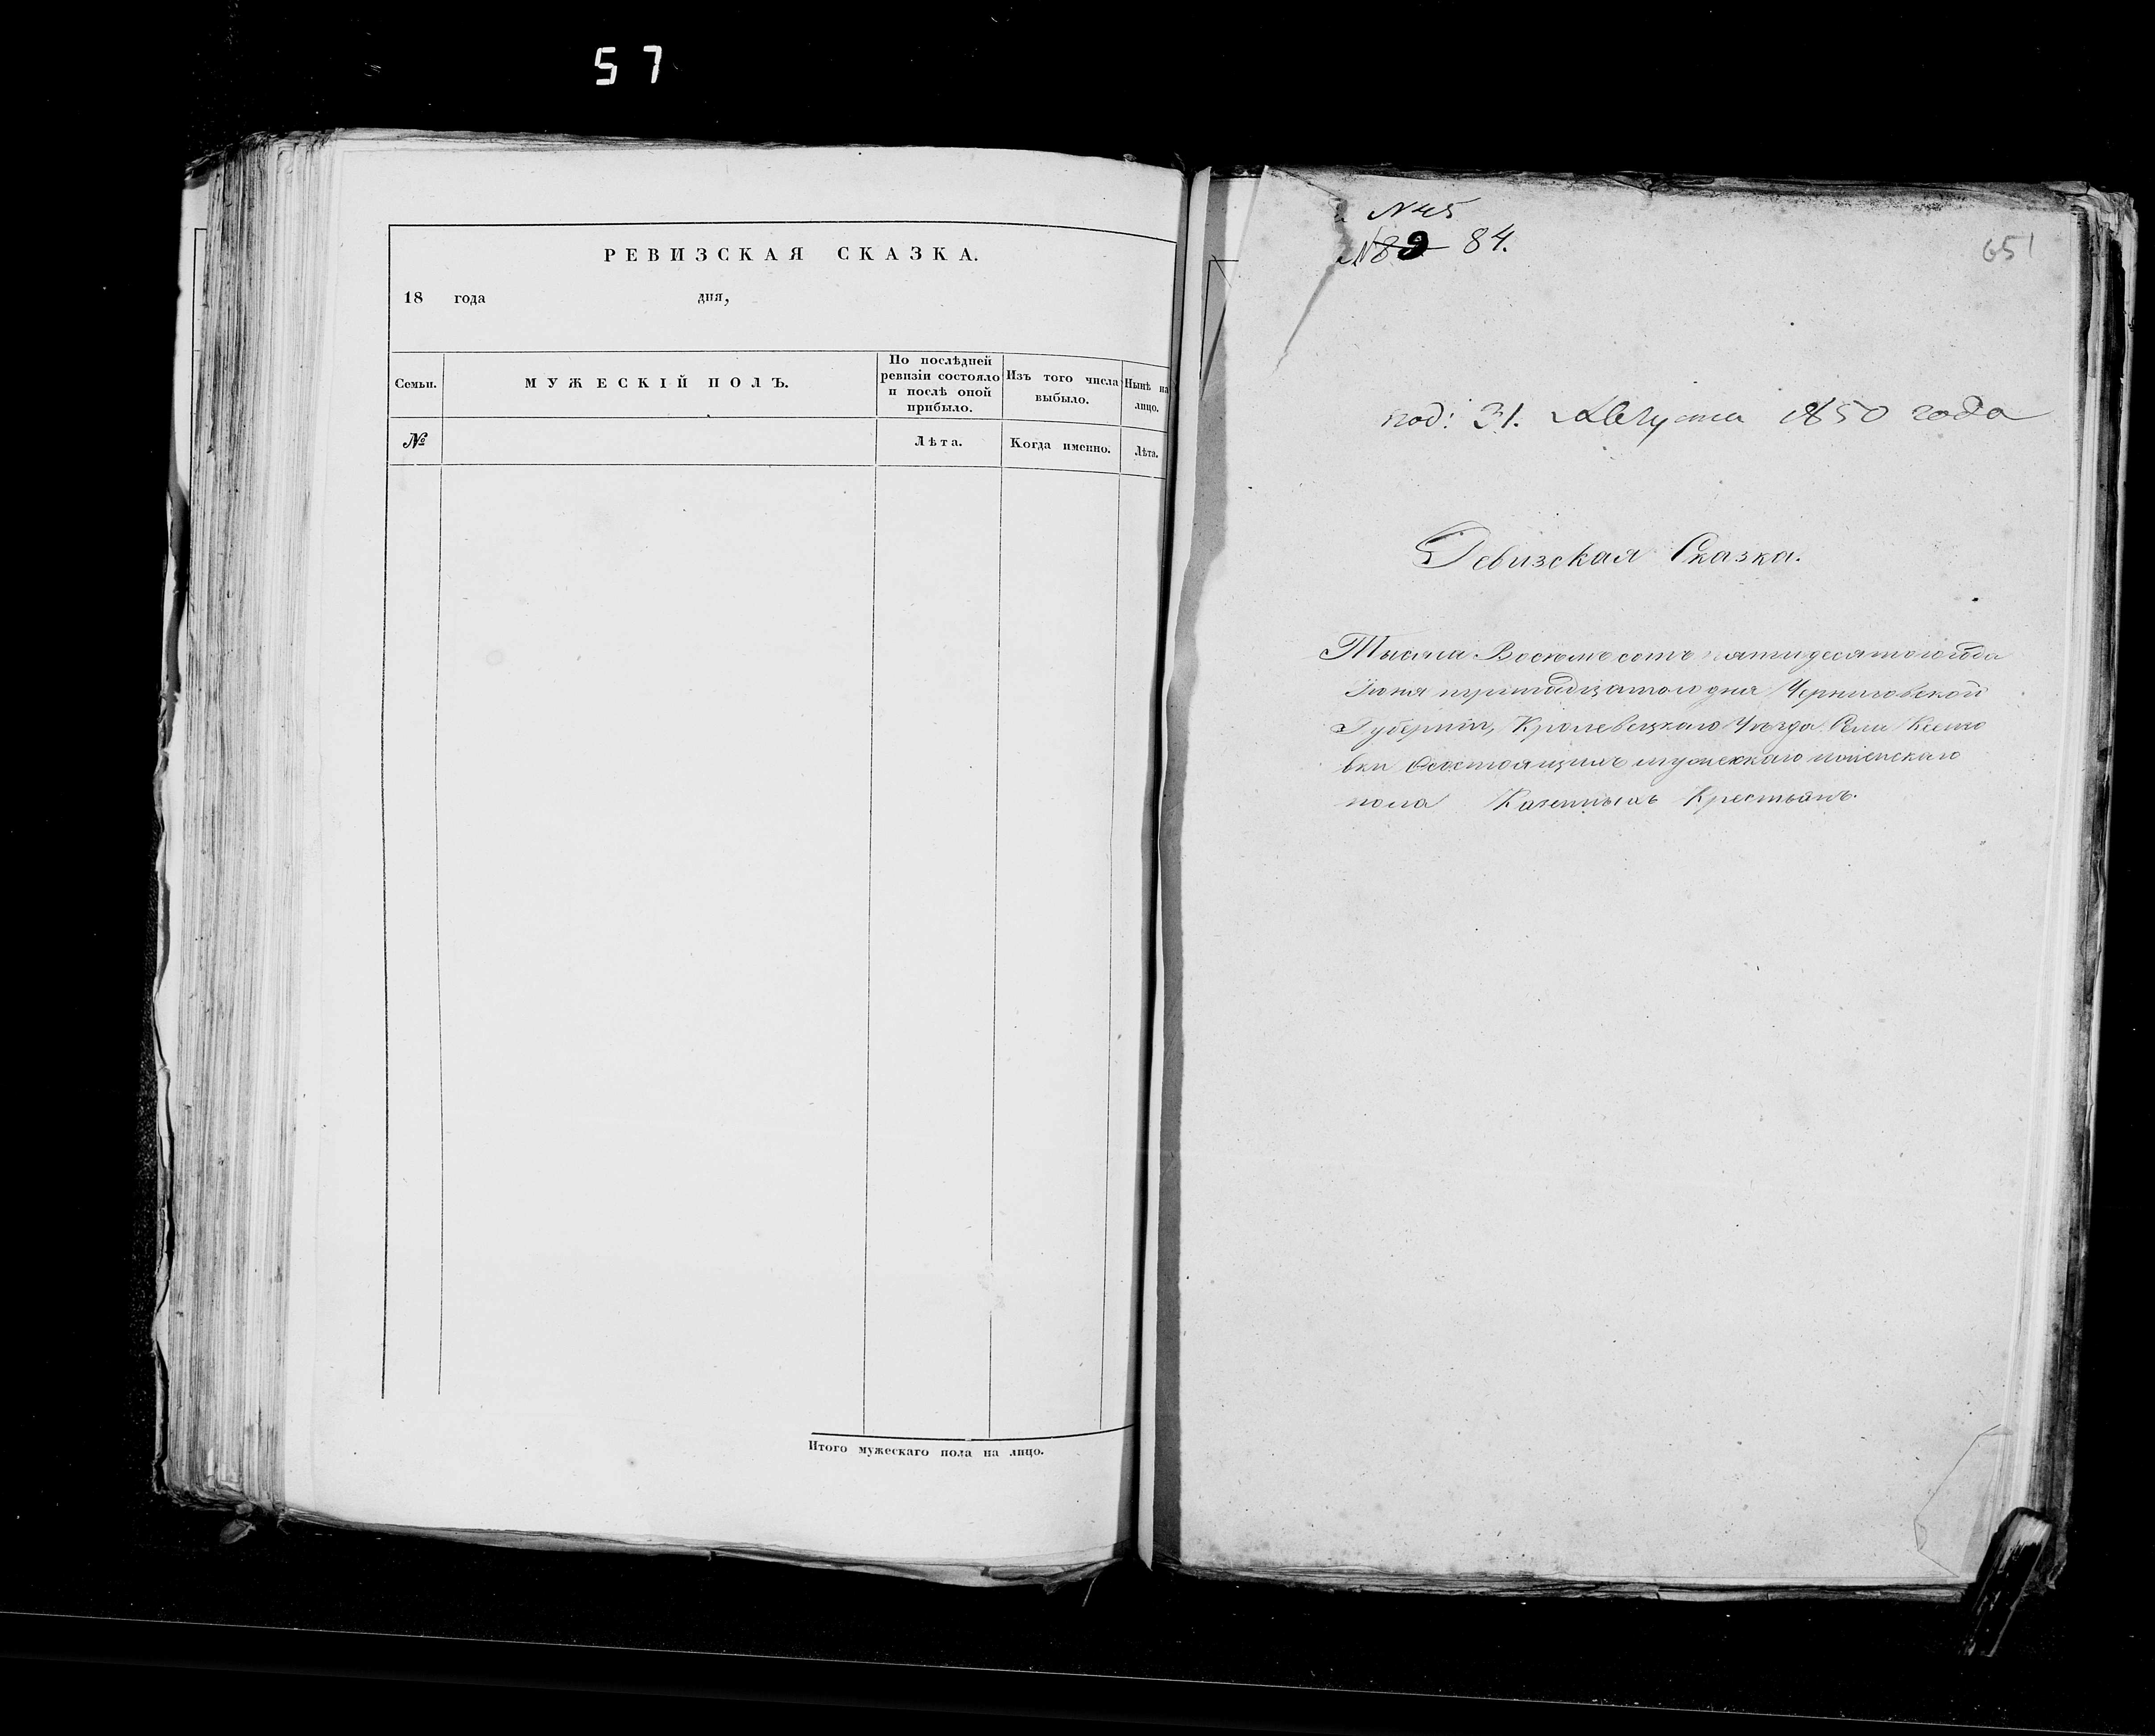 57
РЕВИЗСКАЯ СКАЗКА.
18 года дня,
Семьи.
МУЖЕСКІЙ ПОЛЪ.
По послѣдней ревизіи состояло и послѣ оной прибыло.
Изъ того числа выбыло.
Нынѣ на лицо.
№
Лѣта.
Когда именно.
Лѣта.
Итого мужескаго пола на лицо.
N 45
N 89 84.
651
под: 31. Августа 1850 года
Ревизская Сказка.
Тысяча Восемьсотъ пятидесятого года
Іюня тринадцатого дня Черниговской
Губерніи, Кролевецкаго Уѣзда Села
вки Состоящимъ мужескаго и женскаго
пола Казенныхъ Крестьянъ.